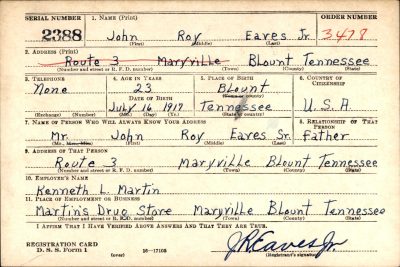 SERIAL NUMBER 1. NAME (Print) ORDER NUMBER
2388 John Roy Eaves Jr. 3478
(First) (Middle) (Last)
2. ADDRESS (Print)
Route 3 Maryville Blount Tennessee
(Number and street or R. F. D. number) (Town) (County) (State)
3. TELEPHONE 4. AGE IN YEARS 5. PLACE OF BIRTH 6. COUNTRY OF CITIZENSHIP
None 23 Blount
DATE OF BIRTH (Town or county)
July 16 1917 Tennessee U.S.A.
(Exchange) (Number) (Mo.) (Day) (Yr.) (State or country)
7. NAME OF PERSON WHO WILL ALWAYS KNOW YOUR ADDRESS 8. RELATIONSHIP OF THAT PERSON
Mr. John Roy Eaves Sr. father
(Mr., Mrs., Miss) (First) (Middle) (Last)
9. ADDRESS OF THAT PERSON
Route 3 Maryville Blount Tennessee
(Number and street or R. F. D. number) (Town) (County) (State)
10. EMPLOYER'S NAME
Kenneth L. Martin
11. PLACE OF EMPLOYMENT OR BUSINESS
Martin's Drug Store Maryville Blount Tennessee
(Number and street or R. F. D. number) (Town) (County) (State)
I AFFIRM THAT I HAVE VERIFIED ABOVE ANSWERS AND THAT THEY ARE TRUE.
J R Eaves Jr
REGISTRATION CARD
D. S. S. Form 1 (over) 16—17105 (Registrant's signature)